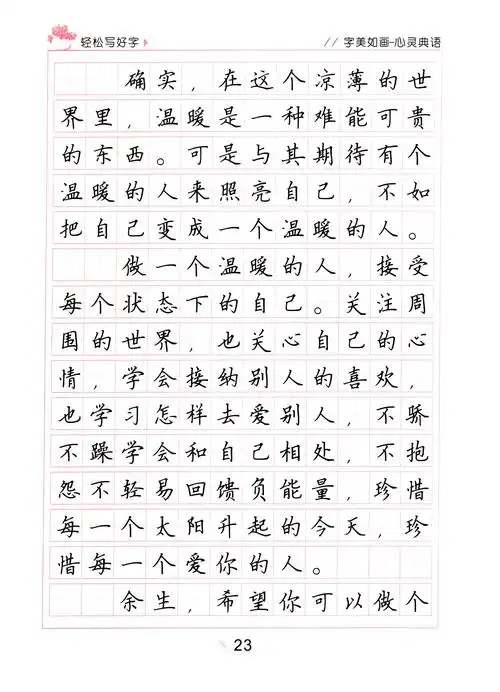 轻松写好字
// 字美如画-心灵典语
确实，在这个凉薄的世
界里，温暖是一种难能可贵
的东西。可是与其期待有个
温暖的人来照亮自己，不如
把自己变成一个温暖的人。
做一个温暖的人，接受
每个状态下的自己。关注周
围的世界，也关心自己的心
情，学会接纳别人的喜欢，
也学习怎样去爱别人，不骄
不躁学会和自己相处，不抱
怨不轻易回馈负能量，珍惜
每一个太阳升起的今天，珍
惜每一个爱你的人。
余生，希望你可以做个
23